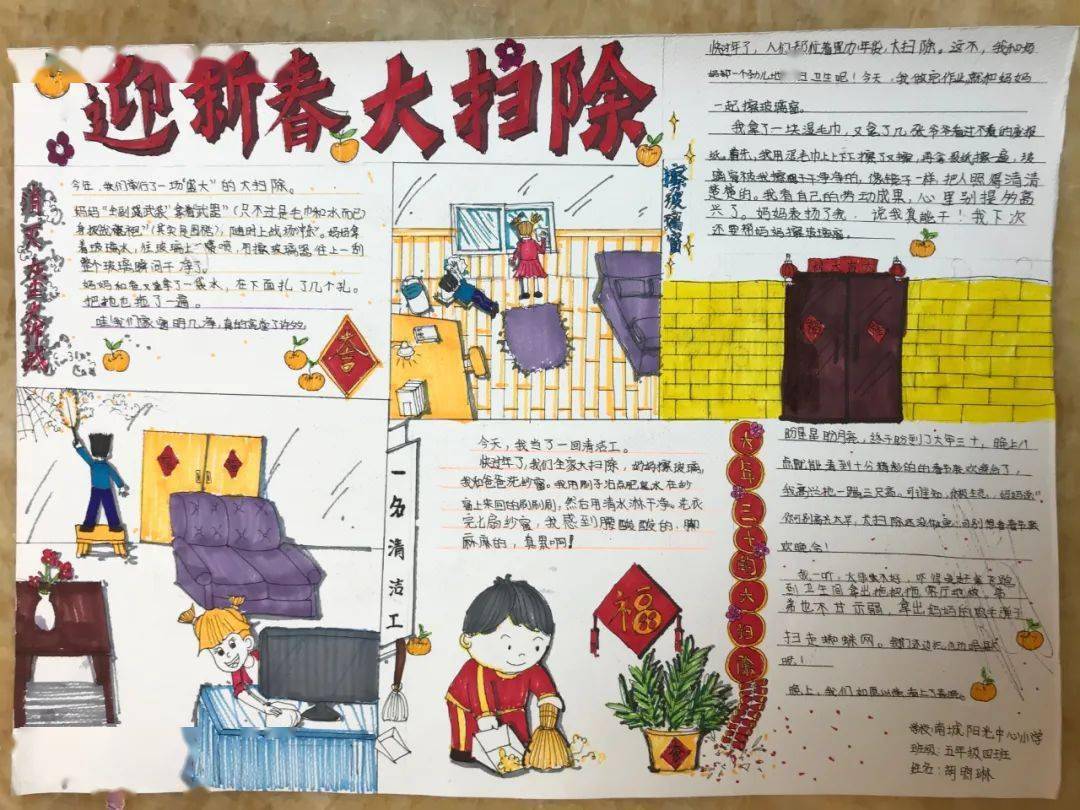 迎新春大扫除
消灭灰尘大作战
今年，我们举行了一场“盛大”的大扫除。
妈妈“全副武装”拿着武器”(只不过是毛巾和水而已)
着玻璃水，往玻璃上一喷喷，用擦玻璃器往上一刮
整个玻璃瞬间干净了。
妈妈和爸又拿了一袋水，在下面扎了几个孔。
把地也拖了一遍。
哇！我们家窗明几净，真的
春
擦玻璃窗
快过年了，人们都忙着里办年货，大扫除。这不，我和妈
妈卫生呢！今天，我做完作业就和妈妈
一起擦玻璃窗。
我拿了一块湿毛巾，又拿了几张爷爷看过不看的报
纸。首先，我用湿毛巾上上下下擦了又擦，再拿报纸擦一遍，玻
璃窗被我擦干干净净的，像镜子一样，把人照得清清
楚楚的。我看自己的劳动成果，心里别提多高
兴了。妈妈表扬了我，说我真能干！我下次
还要帮妈妈擦玻璃窗。
一名清洁工
今天，我当了一回清洁工。
快过年了，我们全家大扫除，妈妈擦玻璃，
我和爸爸洗纱窗。我用刷子沾点肥皂水在纱
窗上来回的刷刷刷，然后用清水淋干净。洗
完七扇纱窗，我感到腰酸酸的，脚
麻麻的，真累啊！
福
大年三十的大扫除
盼星星盼月亮，终于盼到了大年三十，晚上八
点就能看到十分精彩的的春节联欢晚会了，
我高兴地一蹦三尺高，可谁知，妈妈说“
你可别高兴太早，大扫除还没做完，可别想看春节联
欢晚会！
我一听，
到卫生间拿出拖把拖客厅地板，爸
爸也不甘示弱，拿出妈妈的鸡毛掸子
扫走蜘蛛网。
呢！
晚上，我们如愿以偿看上了春晚。
学校：南城阳光中心小学
班级：五年级四班
姓名：胡